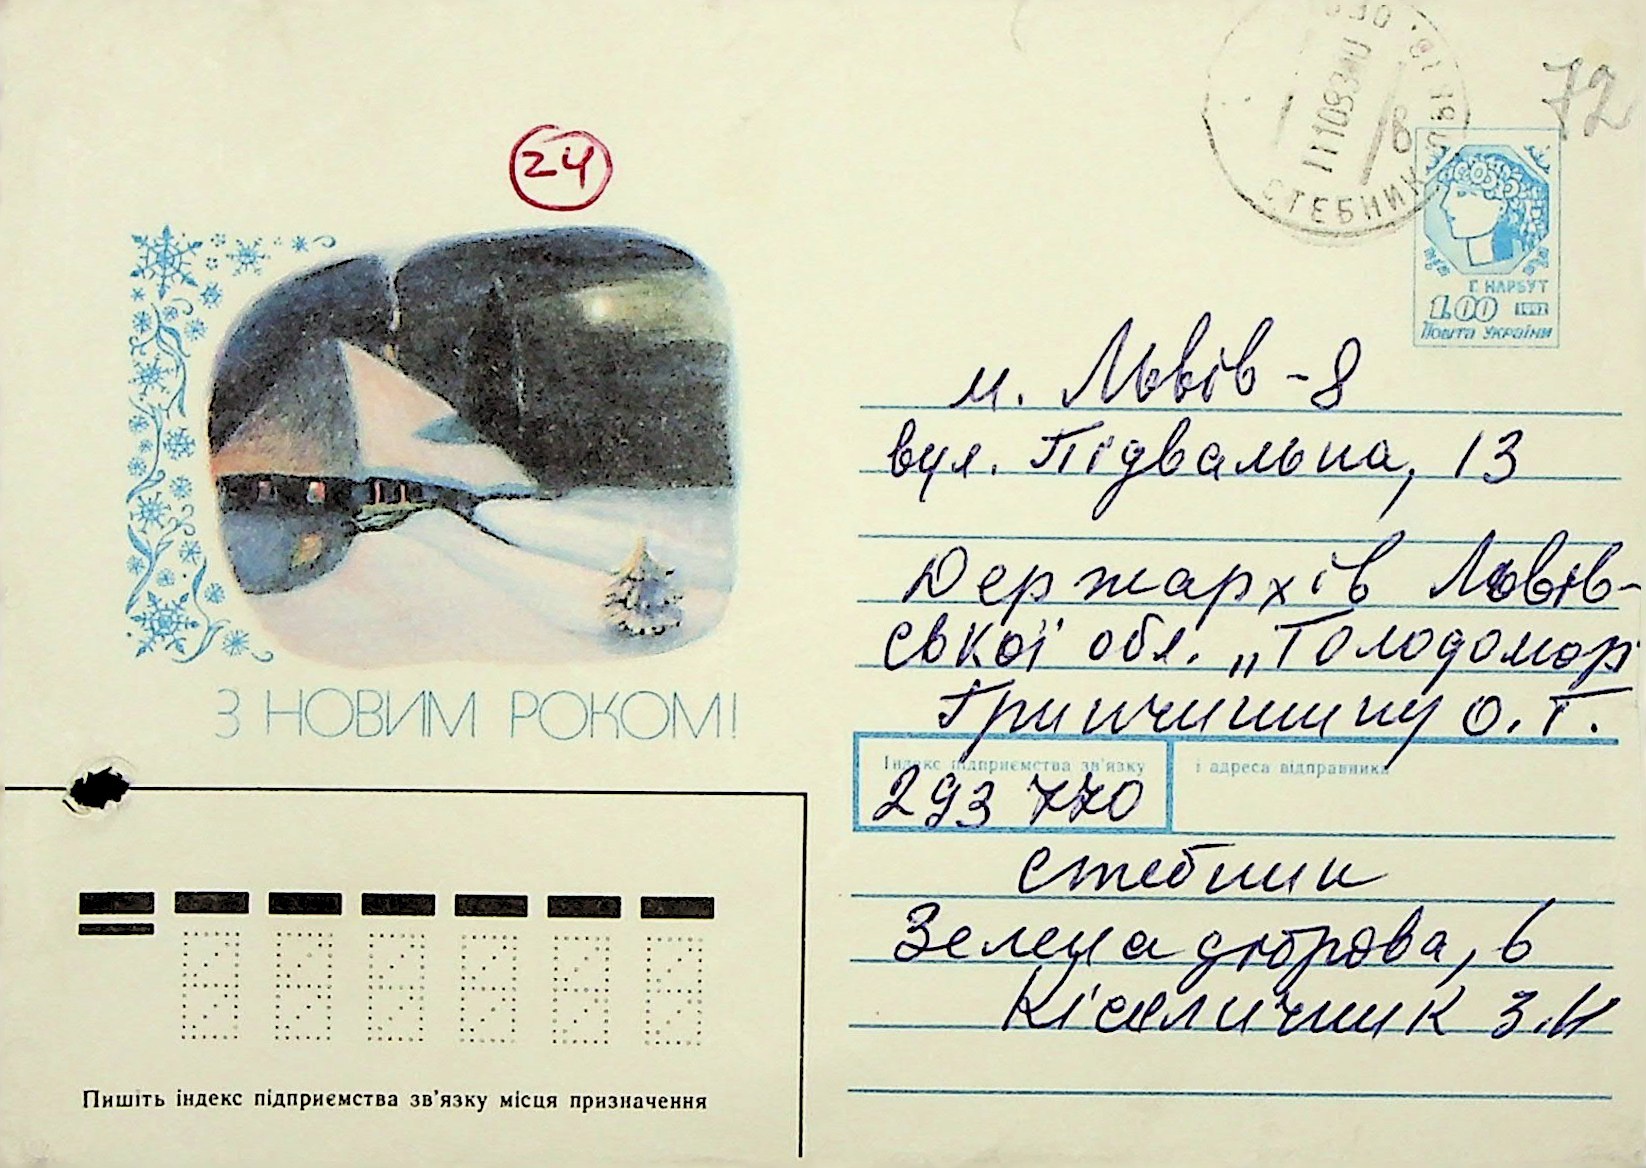 24
72
СТЕБНИК
Г. НАРБУТ
1.00 1992
ПОШТА УКРАЇНИ
м. Львів - 8
вул. Підвальна, 13
Держархів Львів-
ської обл. „Голодомор"
Гринчишину О. Г.
З НОВИМ РОКОМ!
Індекс підприємства зв'язку і адреса відправника
293 770
Стебник
Зелена діброва, 6
Кіселичник З. И
Пишіть індекс підприємства зв'язку місця призначення